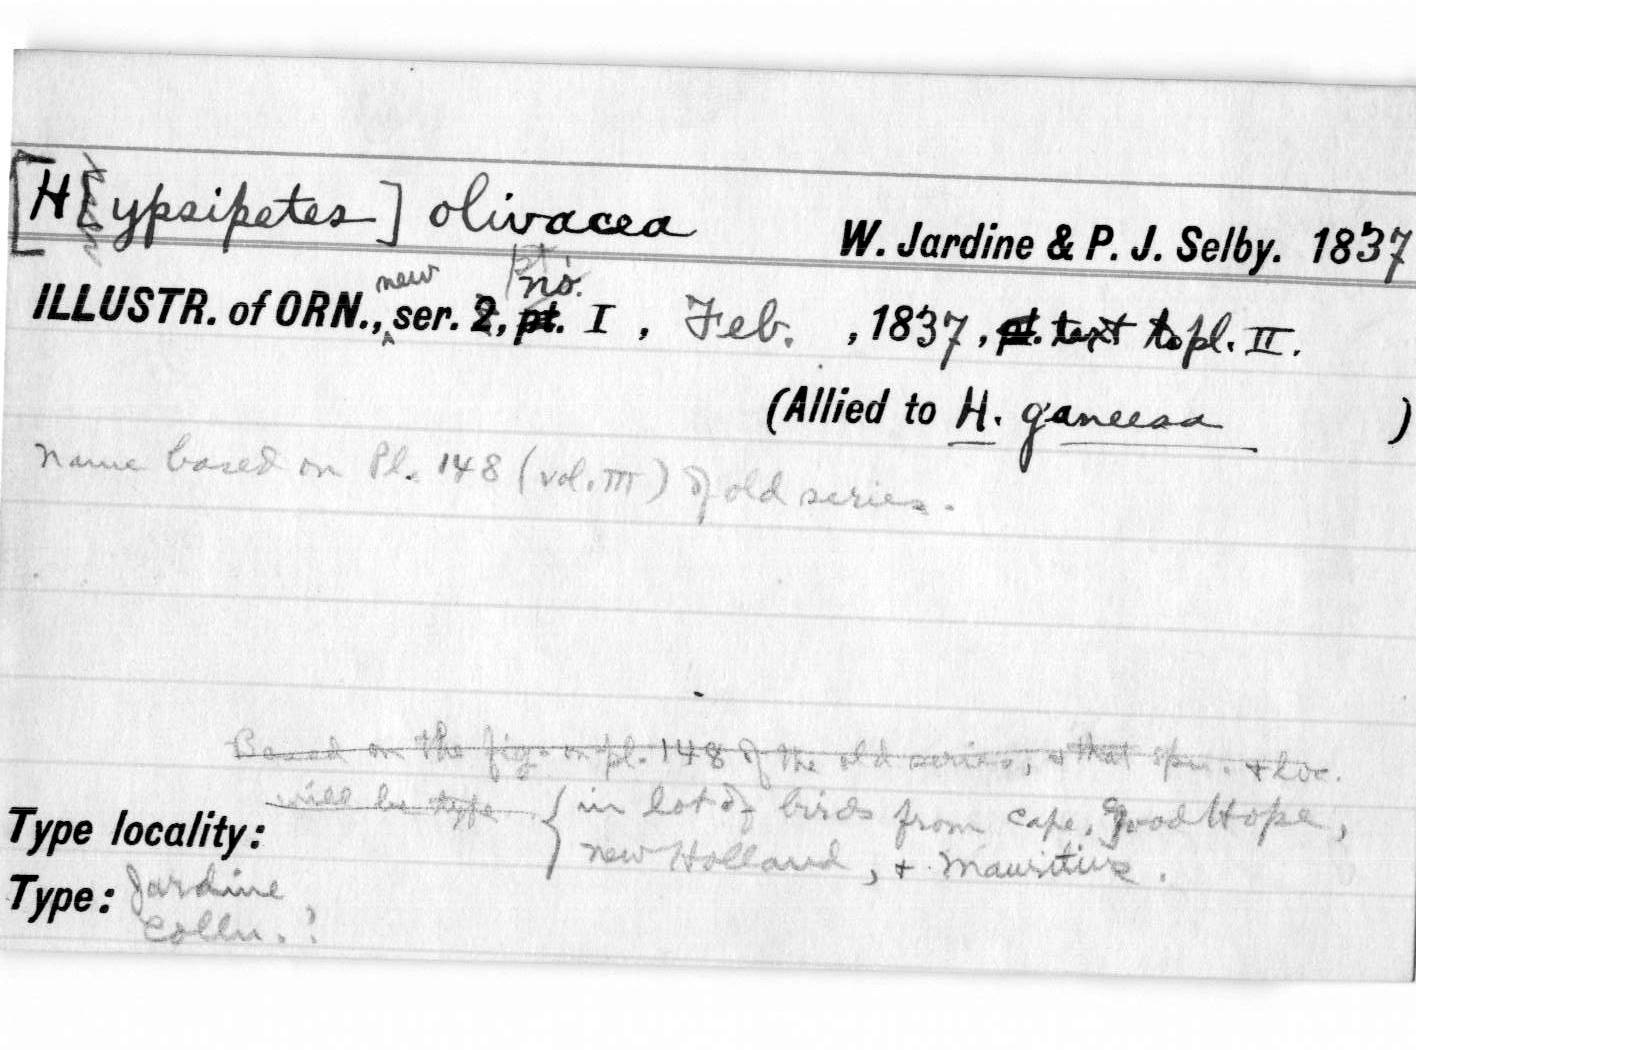 [H[ypsipetes] olivacea W. Jardine & P. J. Selby. 1837
new pt. no.
ILLUSTR. of ORN., ser. 2, pt. I , Feb. , 1837, pl. text to pl. II.
(Allied to H. ganeesa )
Name based on Pl. 148 (vol. III) of old series.
Based on the fig. on pl. 148 of the old series, & that spm. & loc.
will be type { in lot of birds from Cape, Good Hope,
Type locality: New Holland, & Mauritius.
Type: Jardine
Colln. ?